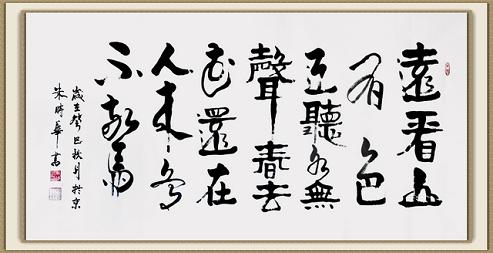 遠看山
有色
近聽水無
聲春去
花還在
人來鳥
不驚
歲在癸巳秋月於京
朱時華書